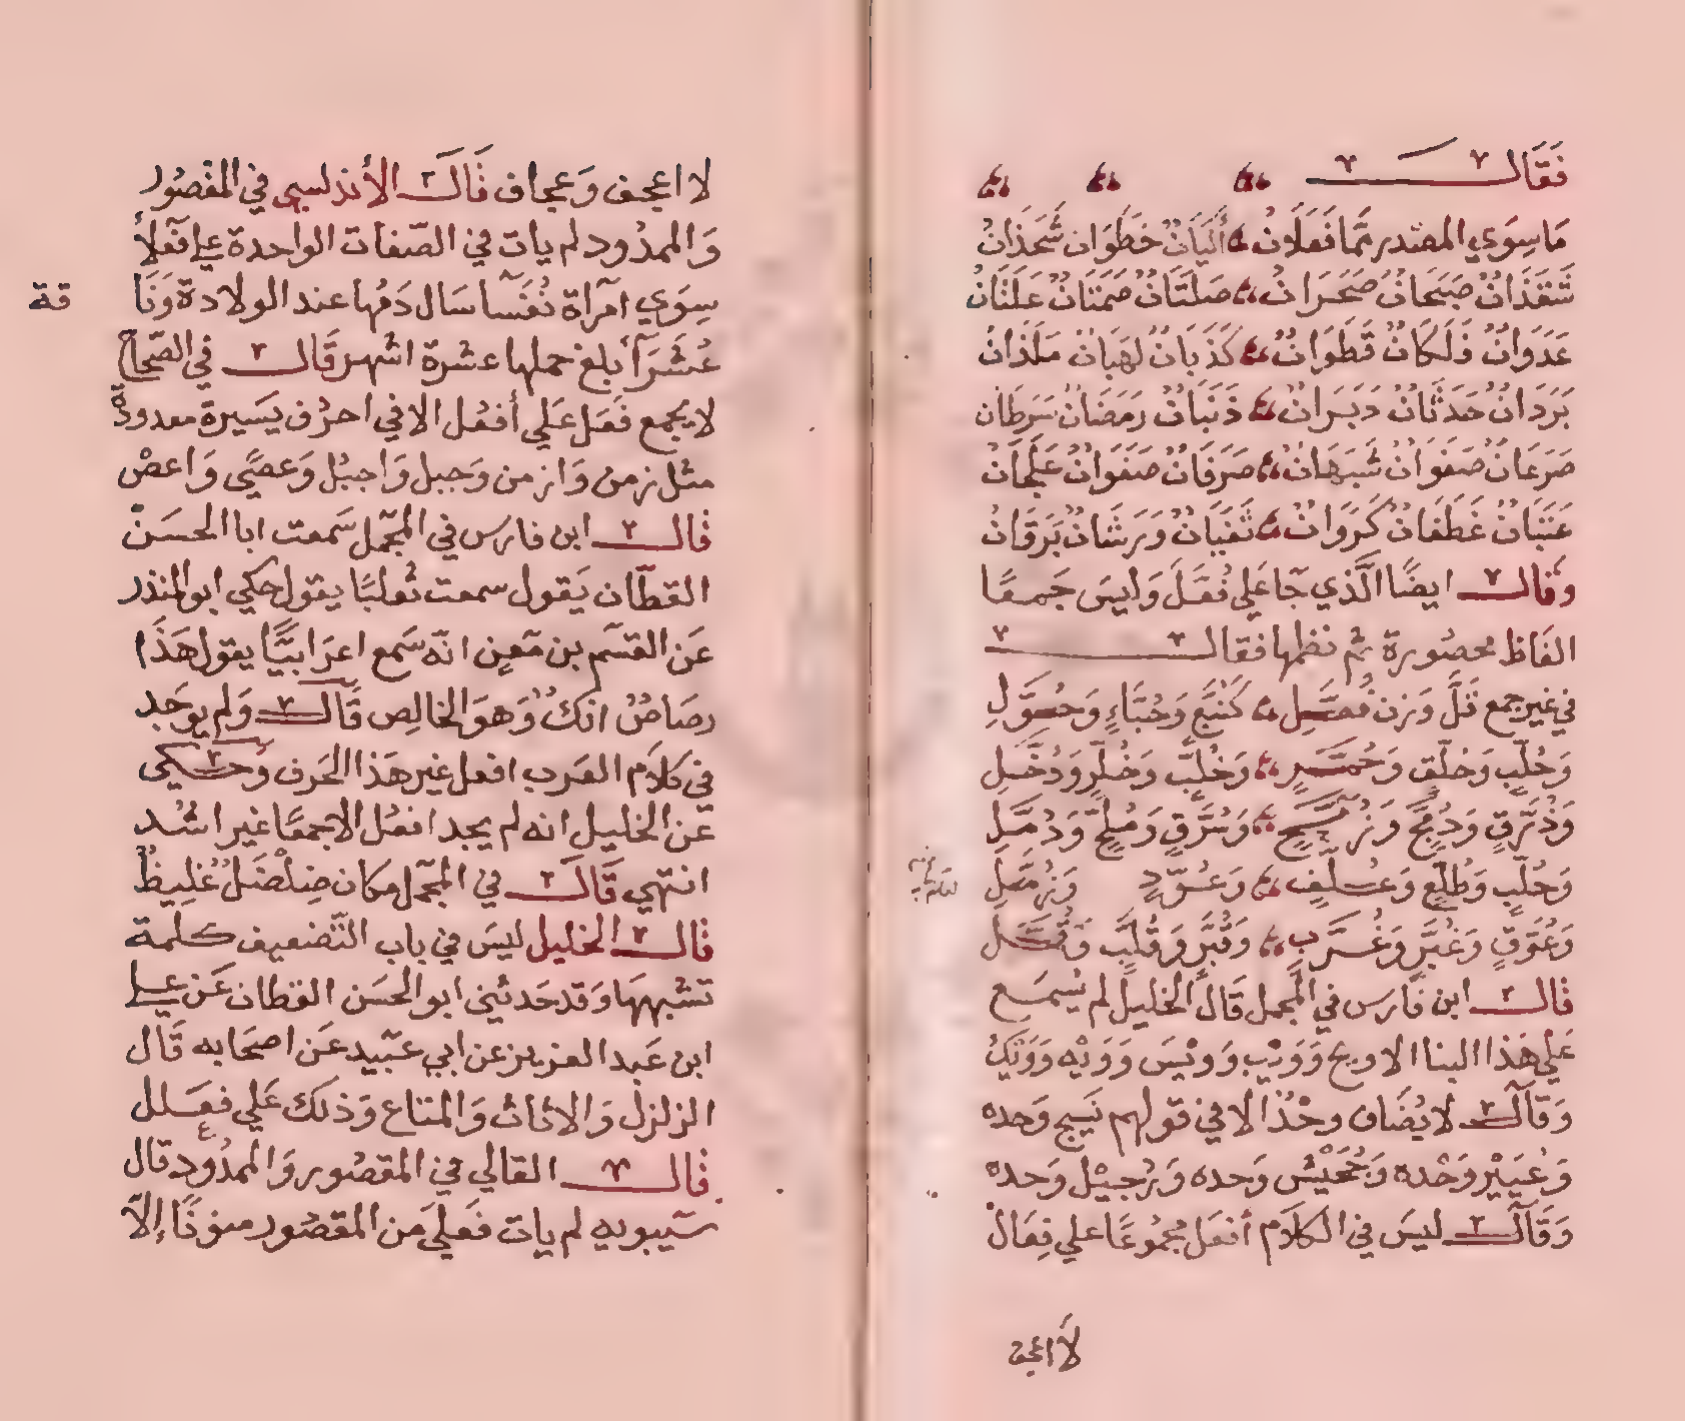 فَقَالَ
مَا سِوَي المصدر ممّا فَعَلَانُ أَلَيَانٌ خَطَوَان شَحَذَانُ
شَقَذَانٌ صَبَحَانٌ صَحَرَانٌ صَلَتَانٌ صَمَتَانٌ عَلَتَانُ
عَدَوَانٌ فَلَكَانٌ قَطَوَانٌ كَذَبَانٌ لهَبَانٌ مَلَذَانُ
بَرَدَانٌ حَدَثَانٌ دَبَرَانٌ ذَنَبَانٌ رَمَضَانٌ سَرَطَان
صَرَعَانٌ صَفَوَانٌ شَبَهَانٌ صَرَفَانٌ صَفَوَانٌ عَلَجَانُ
عَنَبَانٌ غَطَفَانٌ كَرَوَانٌ نَفَيَانٌ وَرَشَانٌ بَرَقَانُ
وَقَالَ ايضًا الَّذي جَا عَلي فُعَّلَ وَليسَ جَمعًا
الفَاظ محصُورة ثم نظمها فقال
في غير جمع قَلَّ وَزن فُعَّلِ كَتُبَّعٍ وَحُبَّاءٍ وَحُوَّلِ
وَحُلَّبٍ وَخلَّقٍ وَحُمَّرٍ وَخُلَّبٍ وَخُلَّرٍ وَدُخَّلِ
وَذُرَّقٍ وَدُمَّجٍ وَزُمَّجٍ وَسُرَّقٍ وَسُلَّجٍ وَدُمَّلِ
وَحُلَّبٍ وَطُلَّعٍ وَعُلَّفٍ وَعُوَّدٍ وَزُمَّلِ
وَعُوَّقٍ وَغُبَّرٍ وَغُرَّبٍ وَقُبَّرٍ وَقُلَّبٍ وَقُمَّلِ
قَالَ ابن فَارَس في المجمل قَالَ الخليل لم يُسمَع
عَلي هَذا البنا الا ويح وَوَيْب وَوَيْسَ وَوَيْه وَوَيْكُ
وَقَالَ لا يُضَاف وحْدُا الا في قولهم نَسِيج وَحده
وَعُيَيْر وَحْده وَجُحَيْش وَحده وَرُجَيْل وَحده
وَقَالَ ليسَ في الكلاَم أفعَل مجمُوعًا علي فِعَال
لَا اعجف
لا اعجف وَعجاف قَالَ الأندلسي في المقصُور
وَالممدُود لم يات في الصّفات الواحدة علي فَعَلاَ
سِوَي امرَاة نُفَسَآ سَال دَمُها عند الولادة وَنَا
قة
عُشَرَآ بلغ حملها عشرة اشهر قَالَ في الصّحاح
لا يجمع فَعَل عَلي أفعُل الا في احرُف يَسيرة معدودة
مثل زمن وَازمن وَجبل وَاجبُل وَعصًى وَاعصٍ
قَالَ ابن فارس في المجمل سَمعت ابا الحسَن
القطّان يَقول سمعت ثعلبًا يقول حكي ابو المنذر
عَن القسَم بن مَعِين انّه سَمع اعرَابيًّا يقول هَذَا
رصَاصٌ انكٌ وَهوَ الخالِص قَالَ وَلم يوجَد
في كلاَم العَرب افعل غير هَذا الحَرف وَحكي
عَن الخليل انه لم يجد افعُل الا جمعًا غير اشُد
انتهي قَالَ في المجمل مكان ضِلضَلٌ غَلِيظ
قَالَ الخليل ليسَ في باب التَّضعيف كلمة
تشبهها وَقد حَدثني ابو الحسَن القطان عَن علي
ابن عَبد العزيز عن ابي عبَيد عَن اصحابه قَال
الزلزل وَالاثاث وَالمتاع وَذلكَ عَلي فعَلل
قَالَ القالي في المقصُور وَالممدُود قال
سيبويه لم يات فعَلي مَن المقصُور منونًا إلاّ